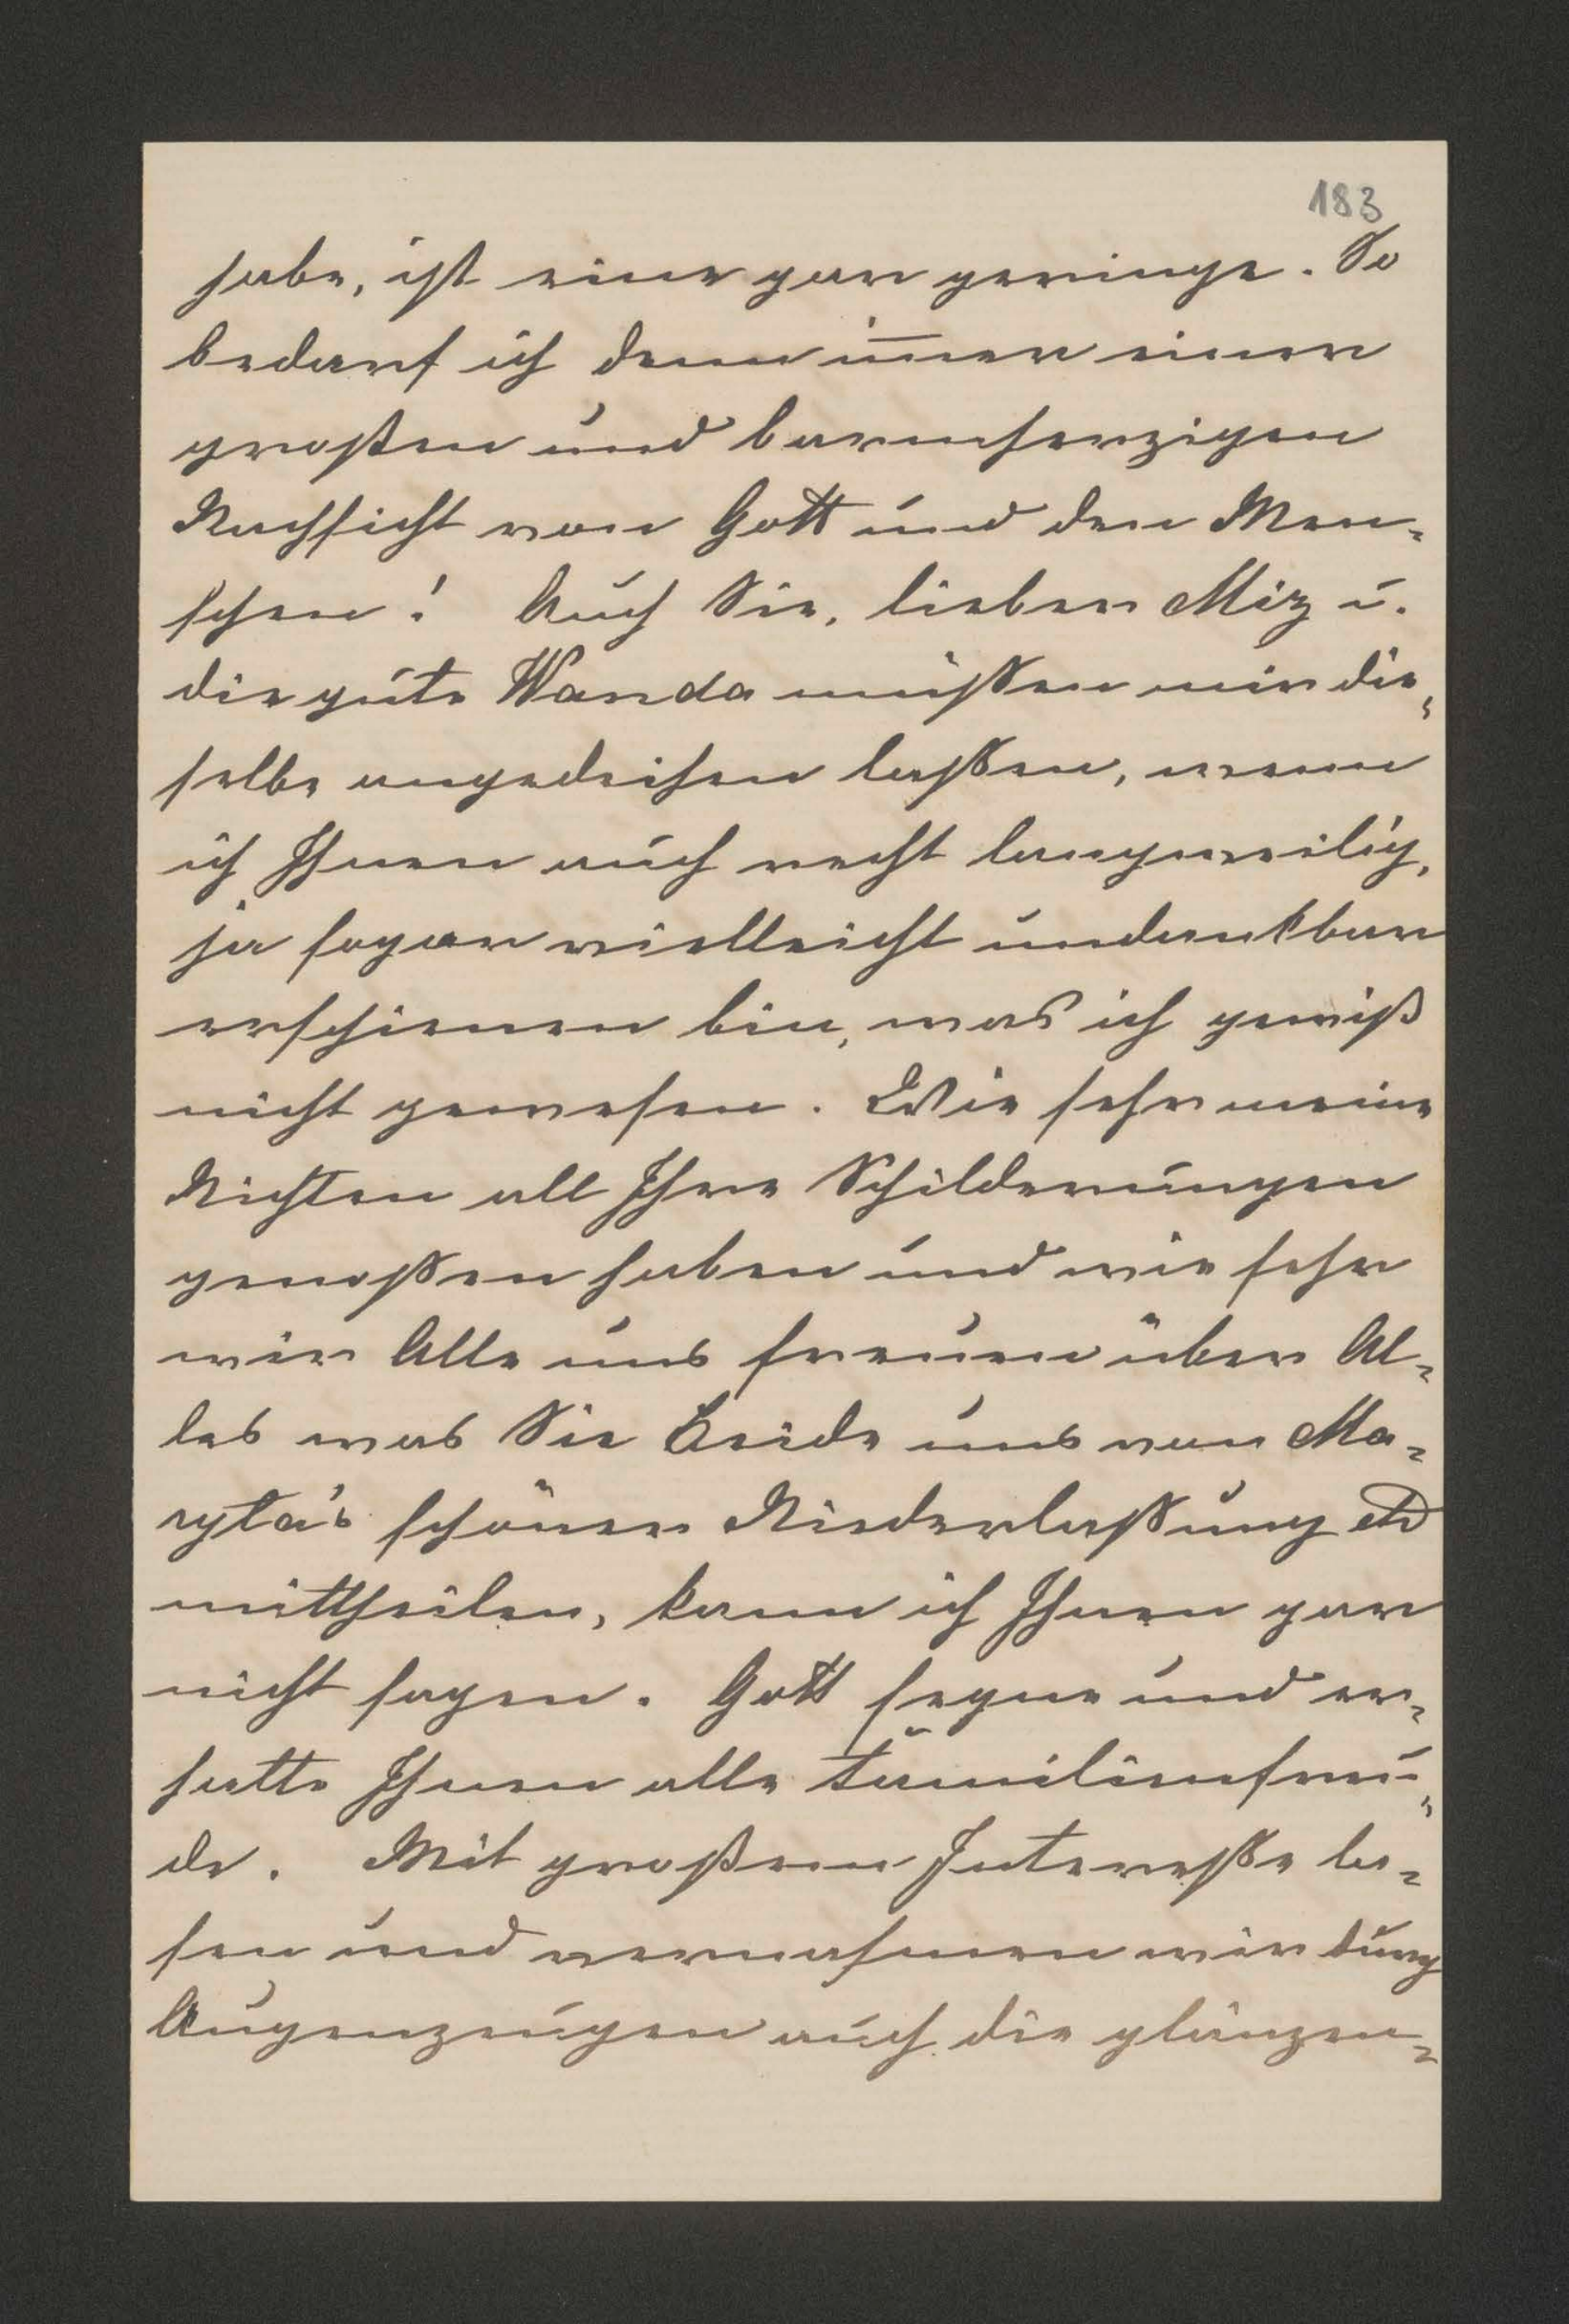 183
habe, ist eine gar geringe. So
bedarf ich denn im̅er einer
großen und barmherzigen
Nachsicht von Gott und den Men-
schen! Auch Sie, lieber Miz u.
die gute Wanda müßen mir die-
selbe angedeihen laßen, wenn
ich Ihnen auch recht langweilig,
ja sogar vielleicht undankbar
erschienen bin, was ich gewiß
nicht gewesen. Wie sehr meine
Nichten all Ihre Schilderungen
genoßen haben und wie sehr
wir Alle uns freuen über Al-
les was Sie Beide uns von Ma-
ryta's schöner Niederlaßung
mittheilen, kann ich Ihnen gar
nicht sagen. Gott segne und er-
halte Ihnen alle Familienfreu-
de. Mit großem Intereße la-
sen und vernahmen wir durch
Augenzeugen auch die glänzen-